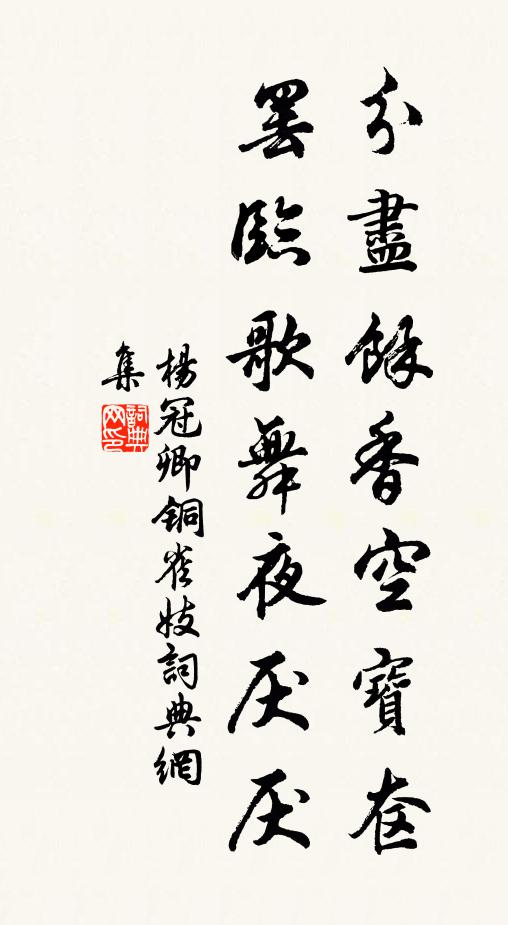 分盡餘香空寶奩
罢臨歌舞夜厌厌
楊冠卿銅雀妓詞典網
集
詞典网印